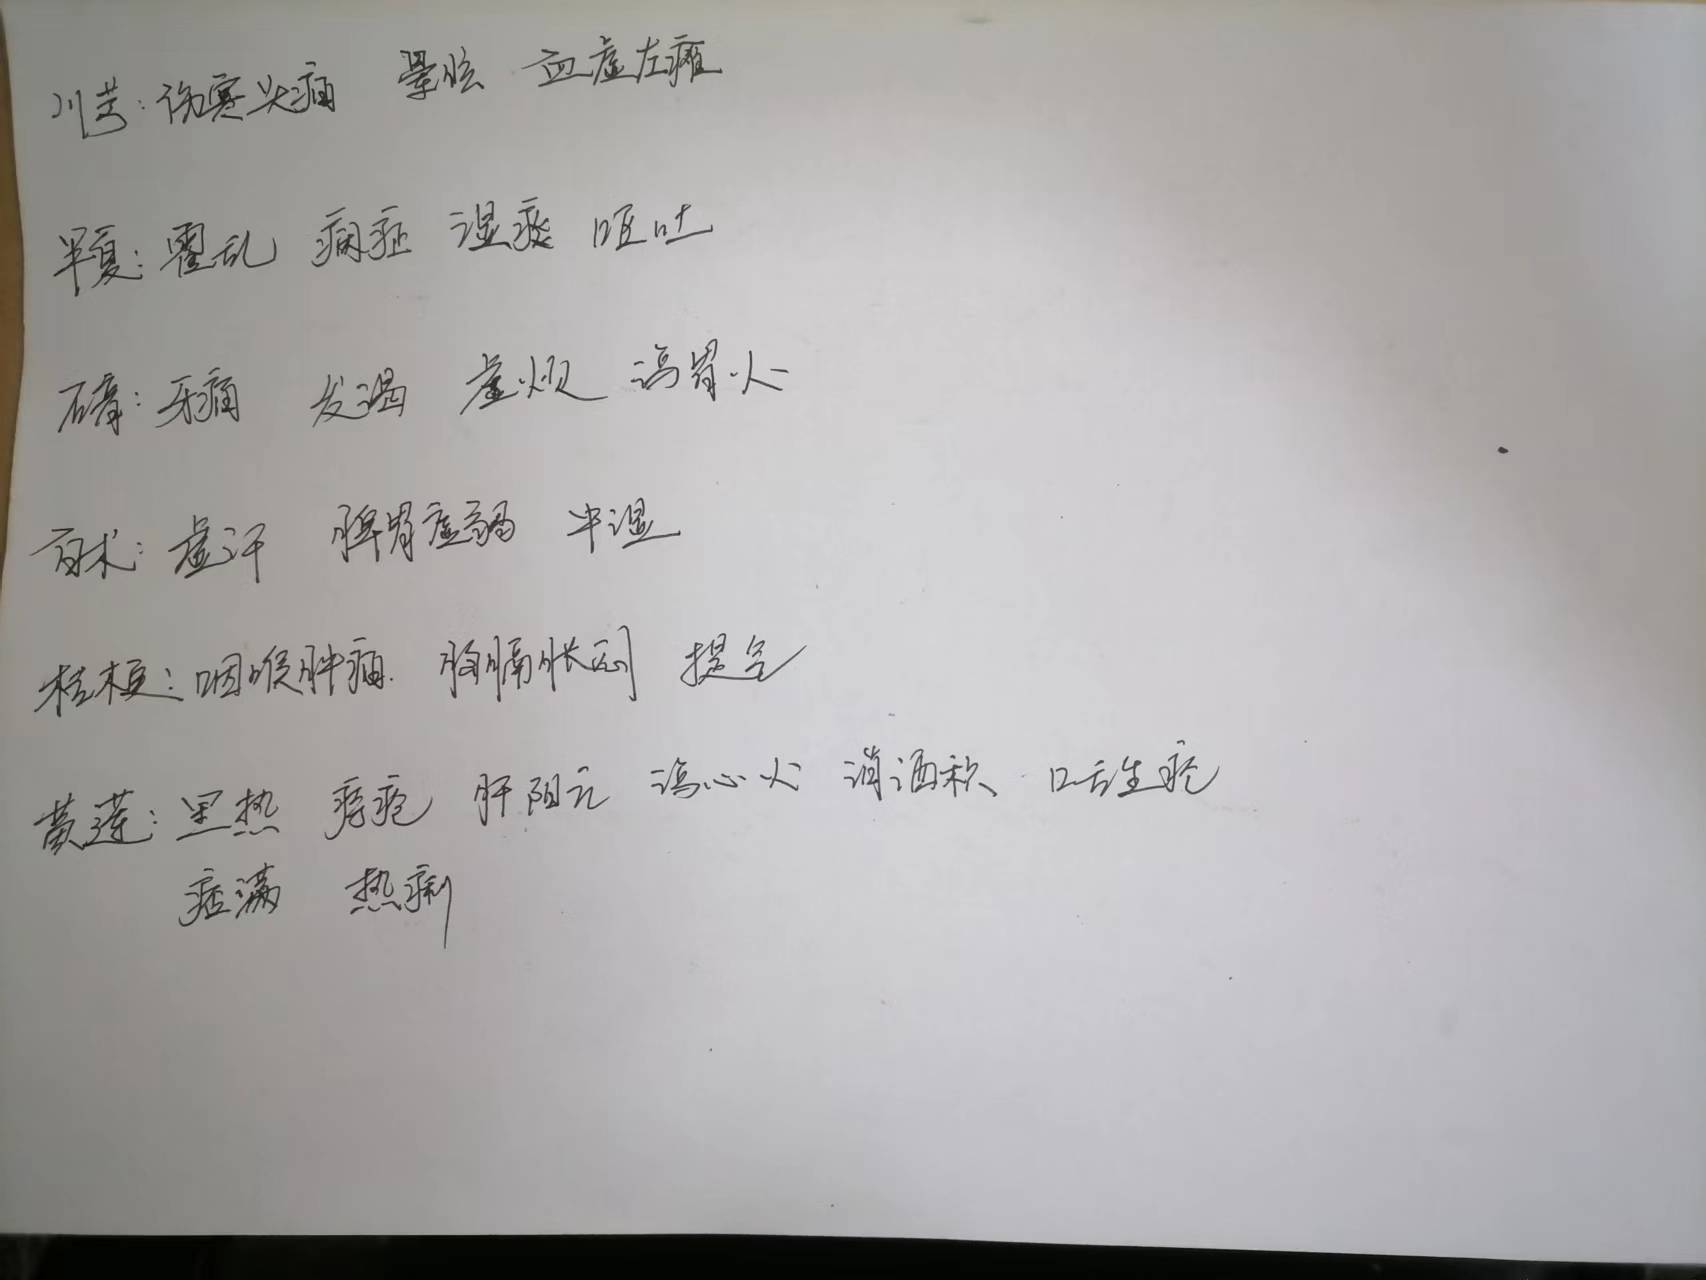 川芎：伤寒头痛 晕眩 血虚左瘫
半夏：霍乱 痫症 湿痰 呕吐
石膏：牙痛 发渴 虚烦 泻胃火
白术：虚汗 脾胃虚弱 中湿
桔梗：咽喉肿痛 胸膈胀闷 提气
黄莲：里热 痔疮 肝阳亢 泻心火 消酒积 口舌生疮
痞满 热痢